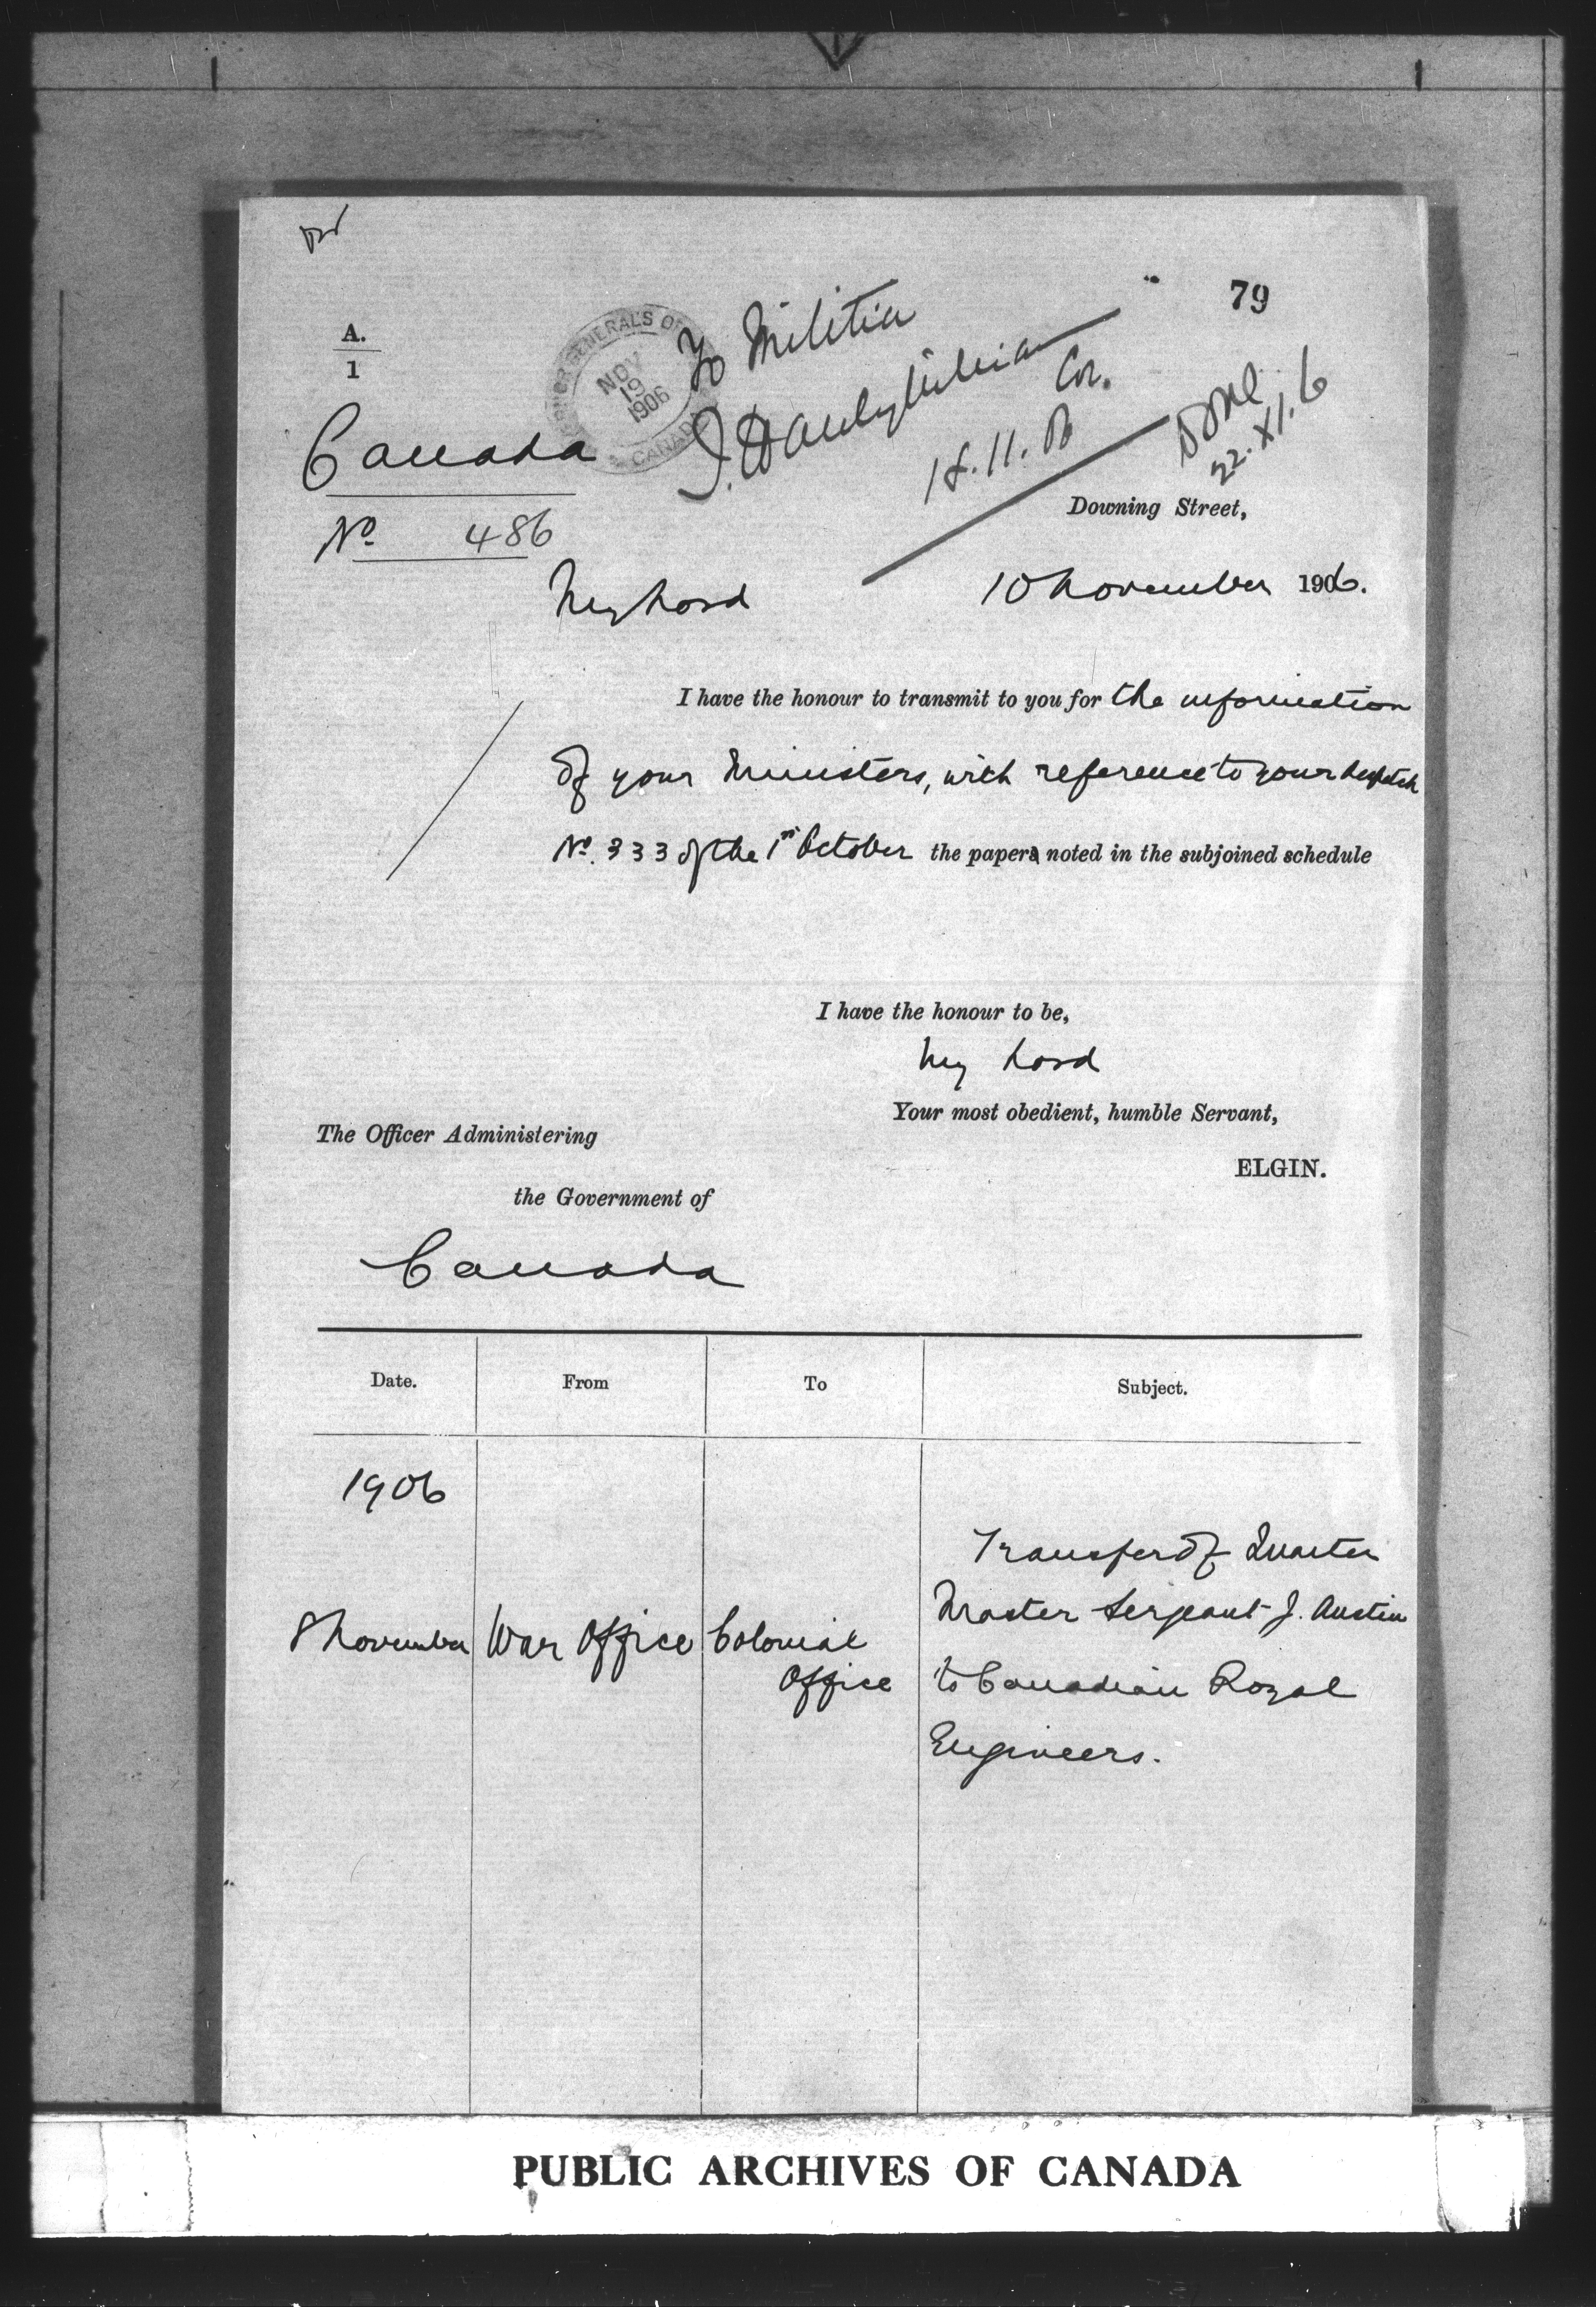 79
A.
1
GOVERNOR GENERAL'S OF
NOV
19
1906
CANADA
To Militia
Col.
18.11.06
Done
22.XI.6
Canada
No 486
Downing Street,
10 November 1906.
My Lord
I have the honour to transmit to you for the information
of your Ministers, with reference to your despatch
No. 333 of the 1st October the papers noted in the subjoined schedule
I have the honour to be,
My Lord
Your most obedient, humble Servant,
ELGIN.
The Officer Administering
the Government of
Canada
Date. From To Subject.
1906
8 November War Office Colonial Office Transfer of Quarter
Master Sergeant J. Austin
to Canadian Royal
Engineers.
PUBLIC ARCHIVES OF CANADA